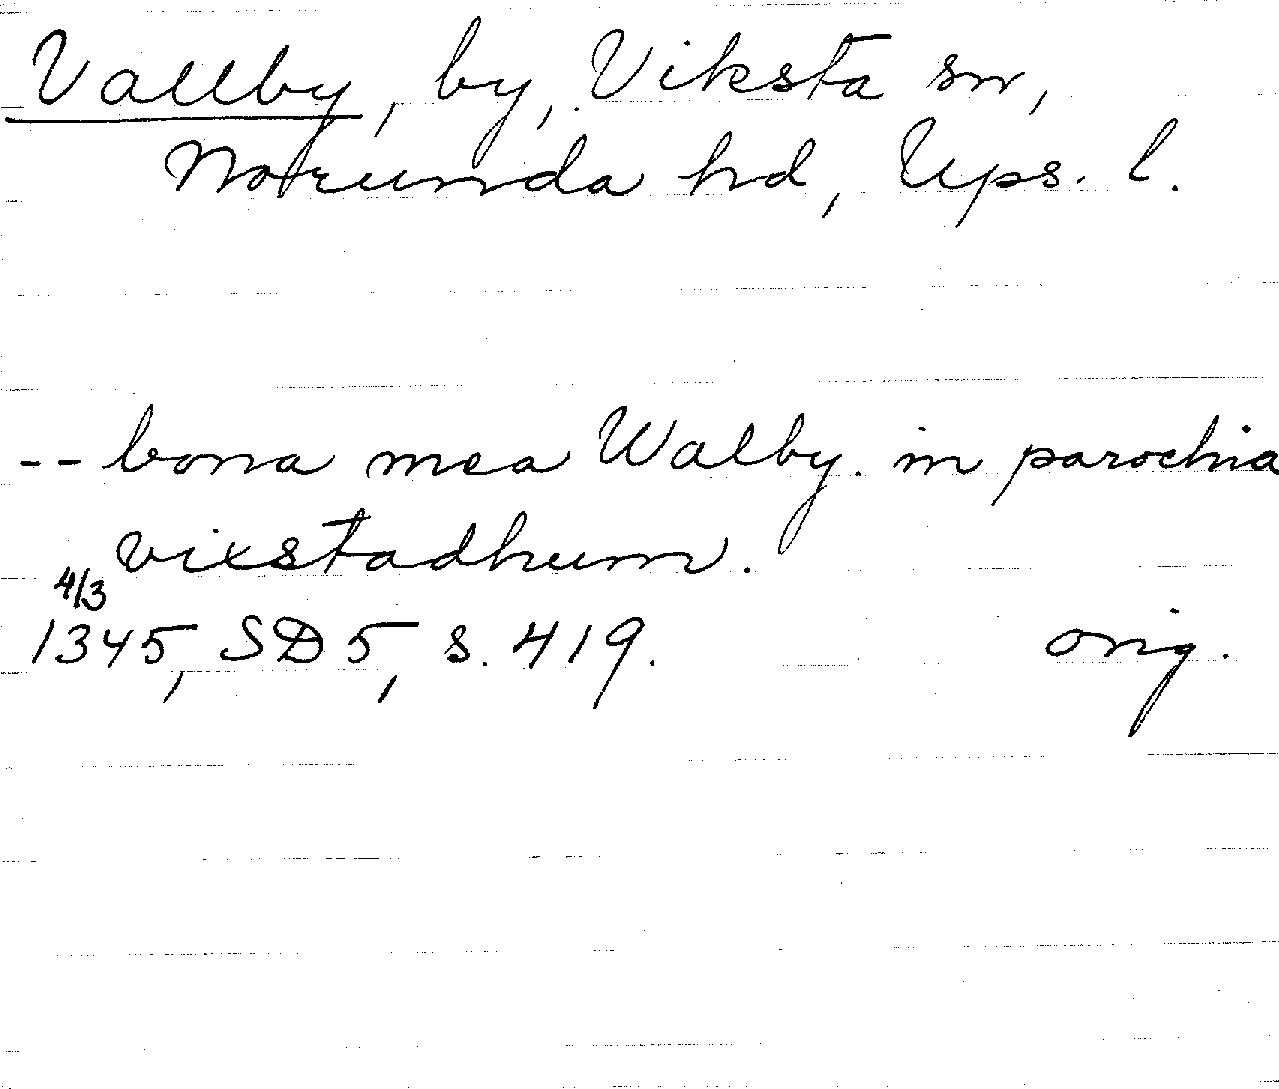 Vallby, by, Viksta sn,
Norunda hd, Ups. l.
-- bona mea Walby. in parochia
vixstadhum.
4/3
1345, SD 5, s. 419. orig.